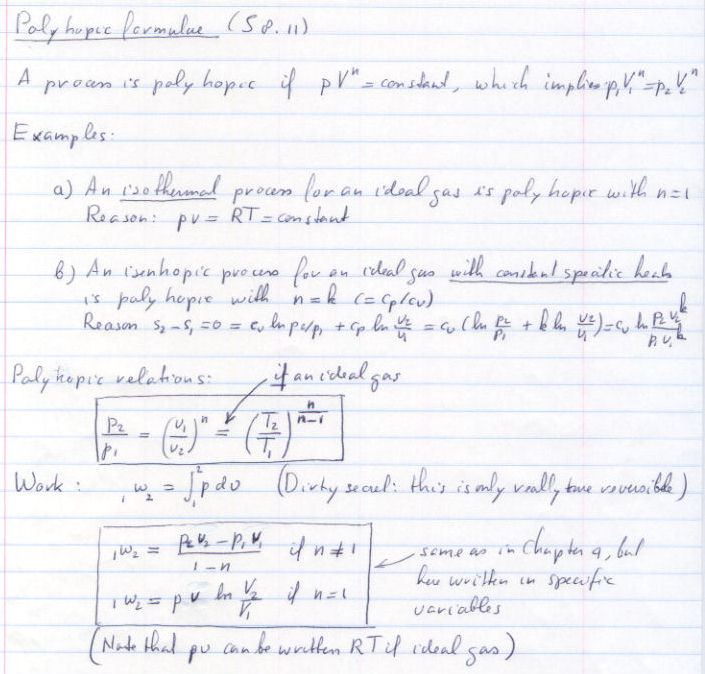 Polytropic formulae (S 8.11)
A process is polytropic if pVⁿ = constant, which implies p₁V₁ⁿ = p₂V₂ⁿ
Examples:
a) An isothermal process for an ideal gas is polytropic with n=1
Reason: pv = RT = constant
b) An isentropic process for an ideal gas with constant specific heats
is polytropic with n = k (= cp/cv)
Reason s₂ - s₁ = 0 = cv ln p₂/p₁ + cp ln v₂/v₁ = cv (ln p₂/p₁ + k ln v₂/v₁) = cv ln p₂v₂ᵏ/p₁v₁ᵏ
Polytropic relations: if an ideal gas
p₂/p₁ = (v₁/v₂)ⁿ = (T₂/T₁)^(n/(n-1))
Work : ₁w₂ = ∫₁² p dv (Dirty secret: this is only really true reversible)
₁w₂ = (p₂v₂ - p₁v₁)/(1-n) if n ≠ 1
same as in Chapter 4, but
here written in specific
variables
₁w₂ = pv ln V₂/V₁ if n=1
(Note that pv can be written RT if ideal gas)